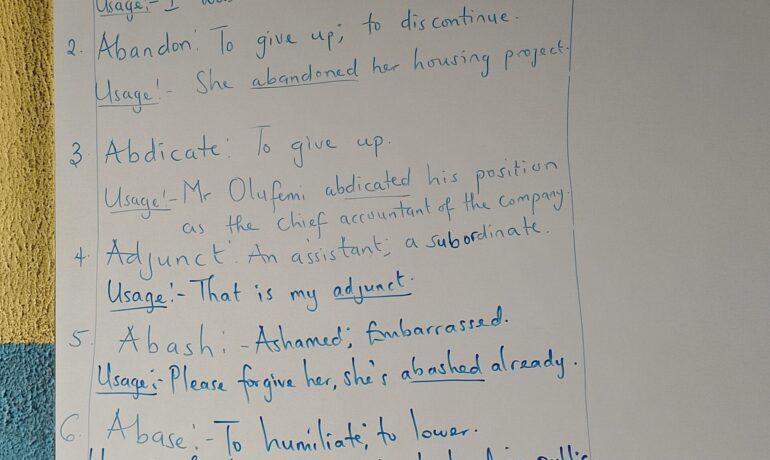 Usage:- I
2. Abandon: To give up; to discontinue.
Usage:- She abandoned her housing project.
3. Abdicate: To give up.
Usage:- Mr Olufemi abdicated his position
as the chief accountant of the company.
4. Adjunct: An assistant; a subordinate.
Usage:- That is my adjunct.
5. Abash:- Ashamed; Embarrassed.
Usage:- Please forgive her, she's abashed already.
6. Abase:- To humiliate; to lower.